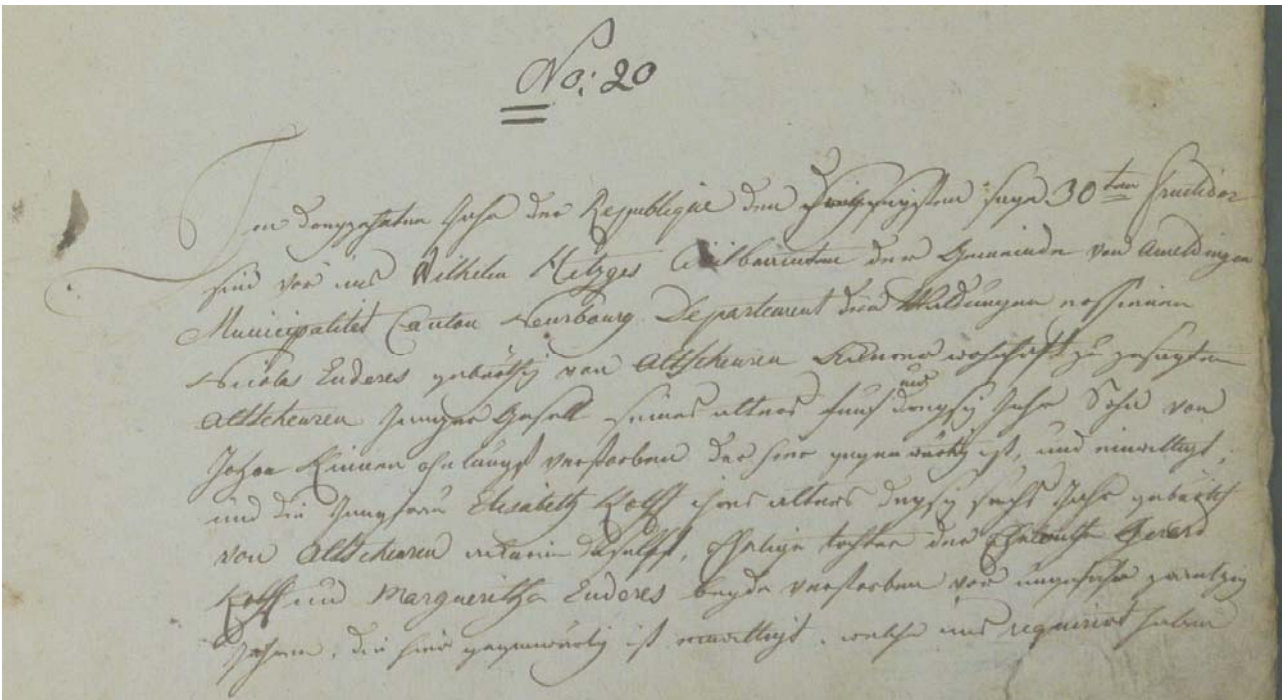 No: 20
Im Jahr der Republique den Tage 30ten Fructidor
sind vor uns Wilhelm Metzges Civilbeamten der Gemeinde von Ameldingen
Municipalitet Canton Neurbourg Departement der Waldungen erschienen
Nicolas Enderes gebürtig von Altscheuren wohnhaft zu gesagten
Altscheuren Junger Gesell seines alters fünf und dreysig Jahr Sohn von
Johan verstorben der hier gegenwärtig ist, und einwilligt,
und die Jungfrau Elisabeth Kolff ihres alters dreysig sechs Jahr gebürtig
von Altscheuren daselbst, Ehelige tochter der Eheleuthe Gerard
Kolff und Margueritha Enderes beyde verstorben vor ungefehr zwantzig
Jahren, die hier gegenwärtig ist einwilligt, welche uns requirirt haben